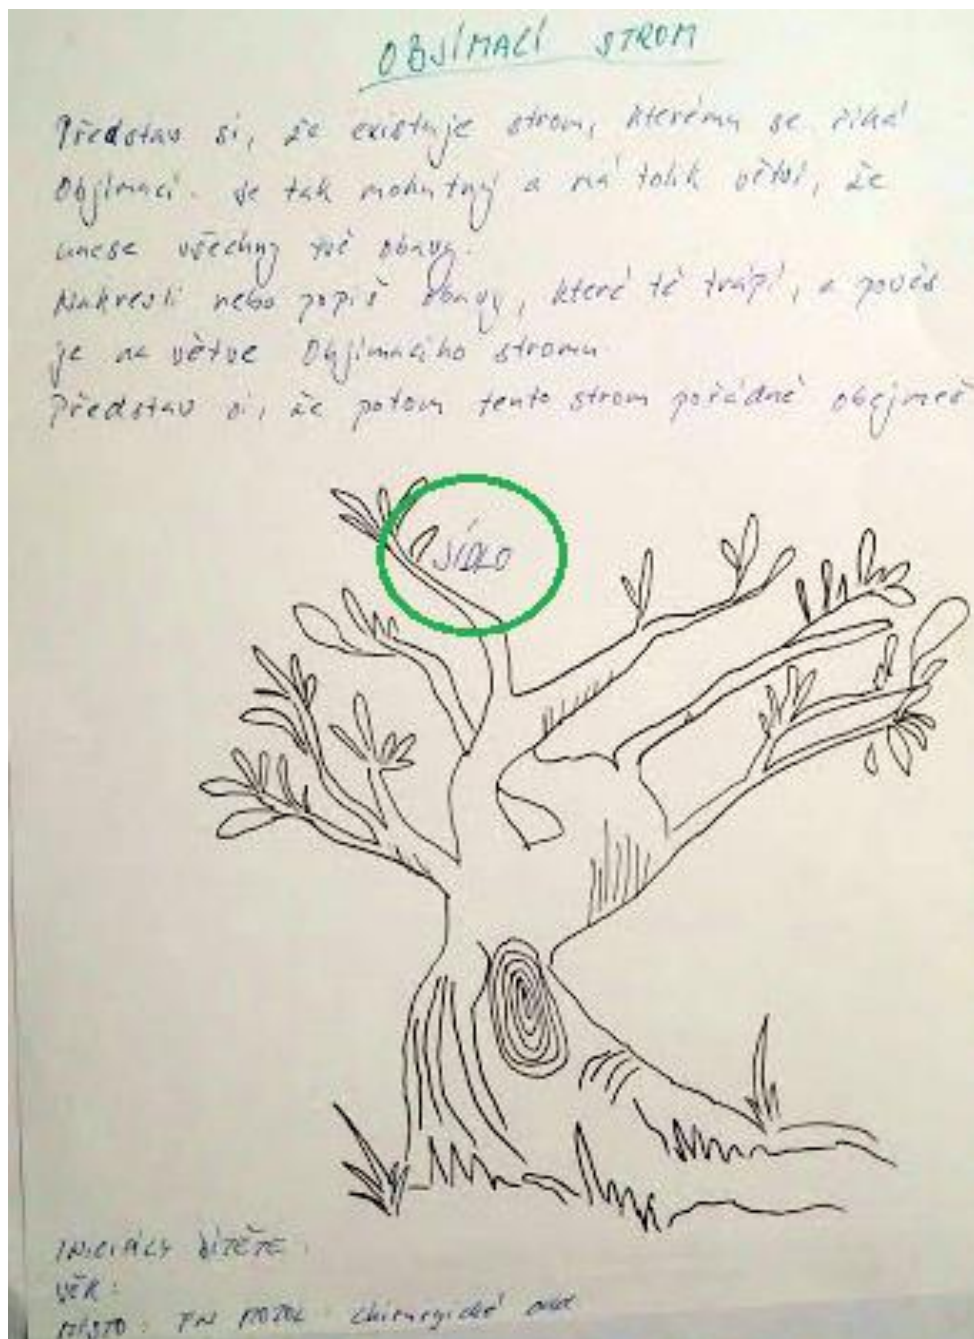 OBJÍMACÍ STROM
Představ si, že existuje strom, kterému se říká
Objímací. Je tak mohutný a má tolik větví, že
unese všechny tvé obavy.
Nakresli nebo popiš obavy, které tě trápí, a pověs
je na větve Objímacího stromu.
Představ si, že potom tento strom pořádně obejmeš
JÍDLO
INICIÁLY DÍTĚTE:
VĚK:
MÍSTO: FN MOTOL chirurgické odd